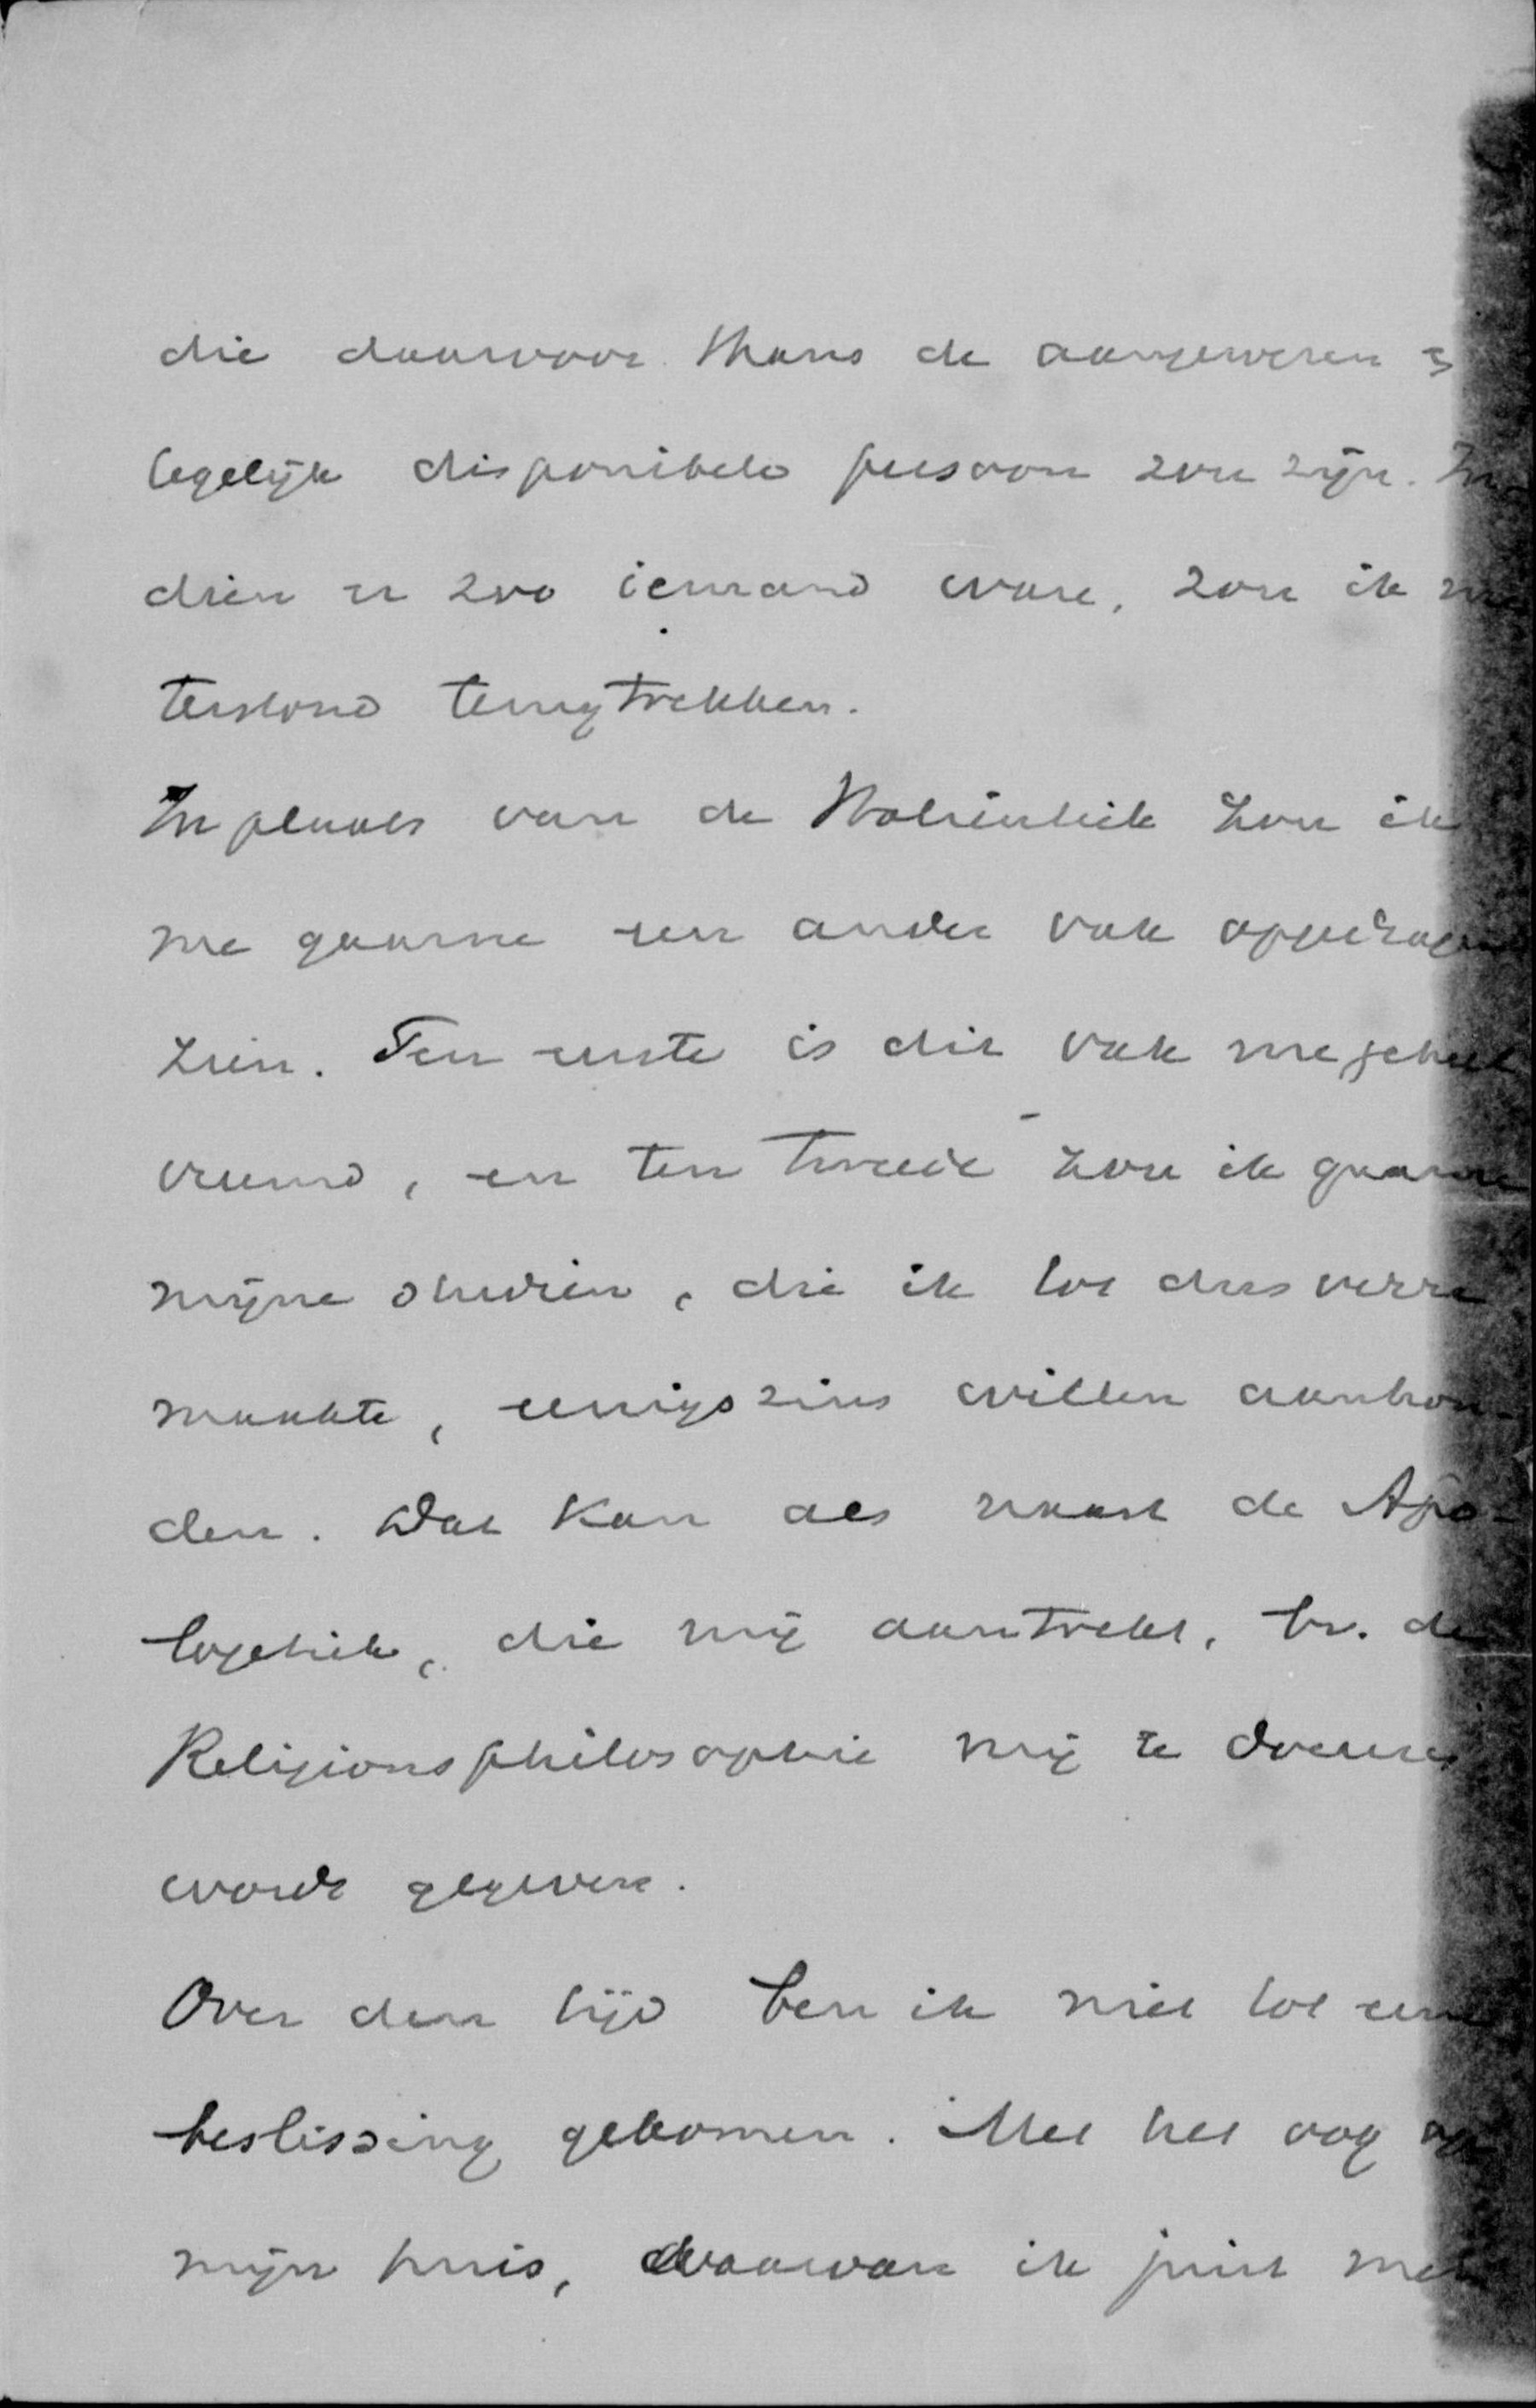 die daarvoor thans de aangewezen &
tegelijk disponibele persoon zou zijn. In-
dien er zoo iemand ware, zou ik me
terstond terugtrekken.
In plaats van de Halieutiek zou ik
me gaarne een ander vak opgedragen
zien. Ten eerste is dit vak me geheel
vreemd, en ten tweede zou ik gaarne
mijne studien, die ik tot dusverre
maakte, eenigszins willen aanhou-
den. Dat kan als naast de Apo-
logetiek, die mij aantrekt, bv. de
Religionsphilosophie mij te doceeren
wordt gegeven.
Over den tijd ben ik niet tot eene
beslissing gekomen. Met het oog op
mijn huis, waarvan ik juist met